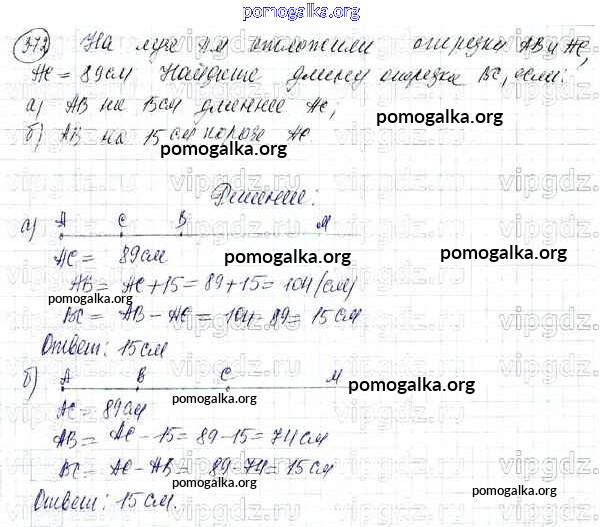 pomogalka.org
372 На луче АМ отложили отрезки АВ и АС,
АС = 89см Найдите длину отрезка ВС, если:
а) АВ на 15см длиннее АС;
б) АВ на 15 см короче АС
pomogalka.org
pomogalka.org
vipgdz.
Решение:
а) А С В М
pomogalka.org
АС = 89см
pomogalka.org
pomogalka.org
АВ = АС + 15 = 89 + 15 = 104 (см)
pomogalka.org
ВС = АВ - АС = 104 - 89 = 15 см
Ответ: 15 см
б) А В С М
pomogalka.org
АС = 89см
pomogalka.org
АВ = АС - 15 = 89 - 15 = 74 см
ВС = АС - АВ = 89 - 74 = 15 см
Ответ: 15 см.
pomogalka.org